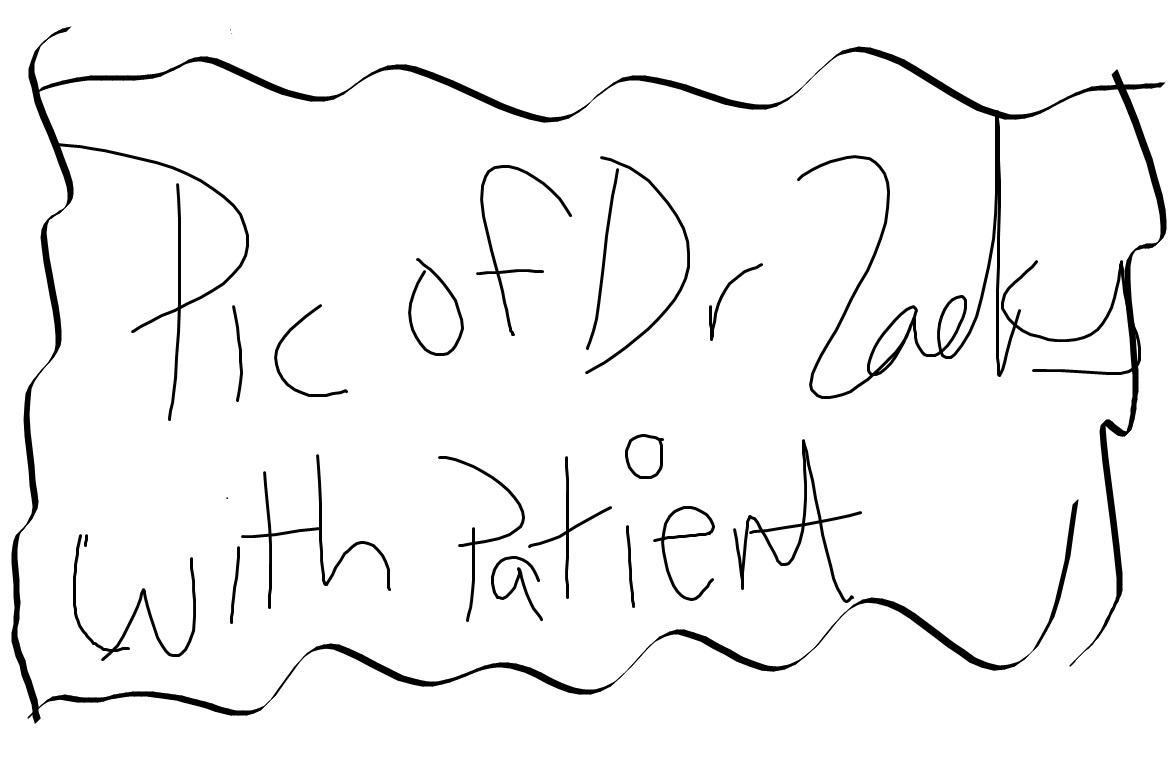 Pic of Dr Zacky
with Patient